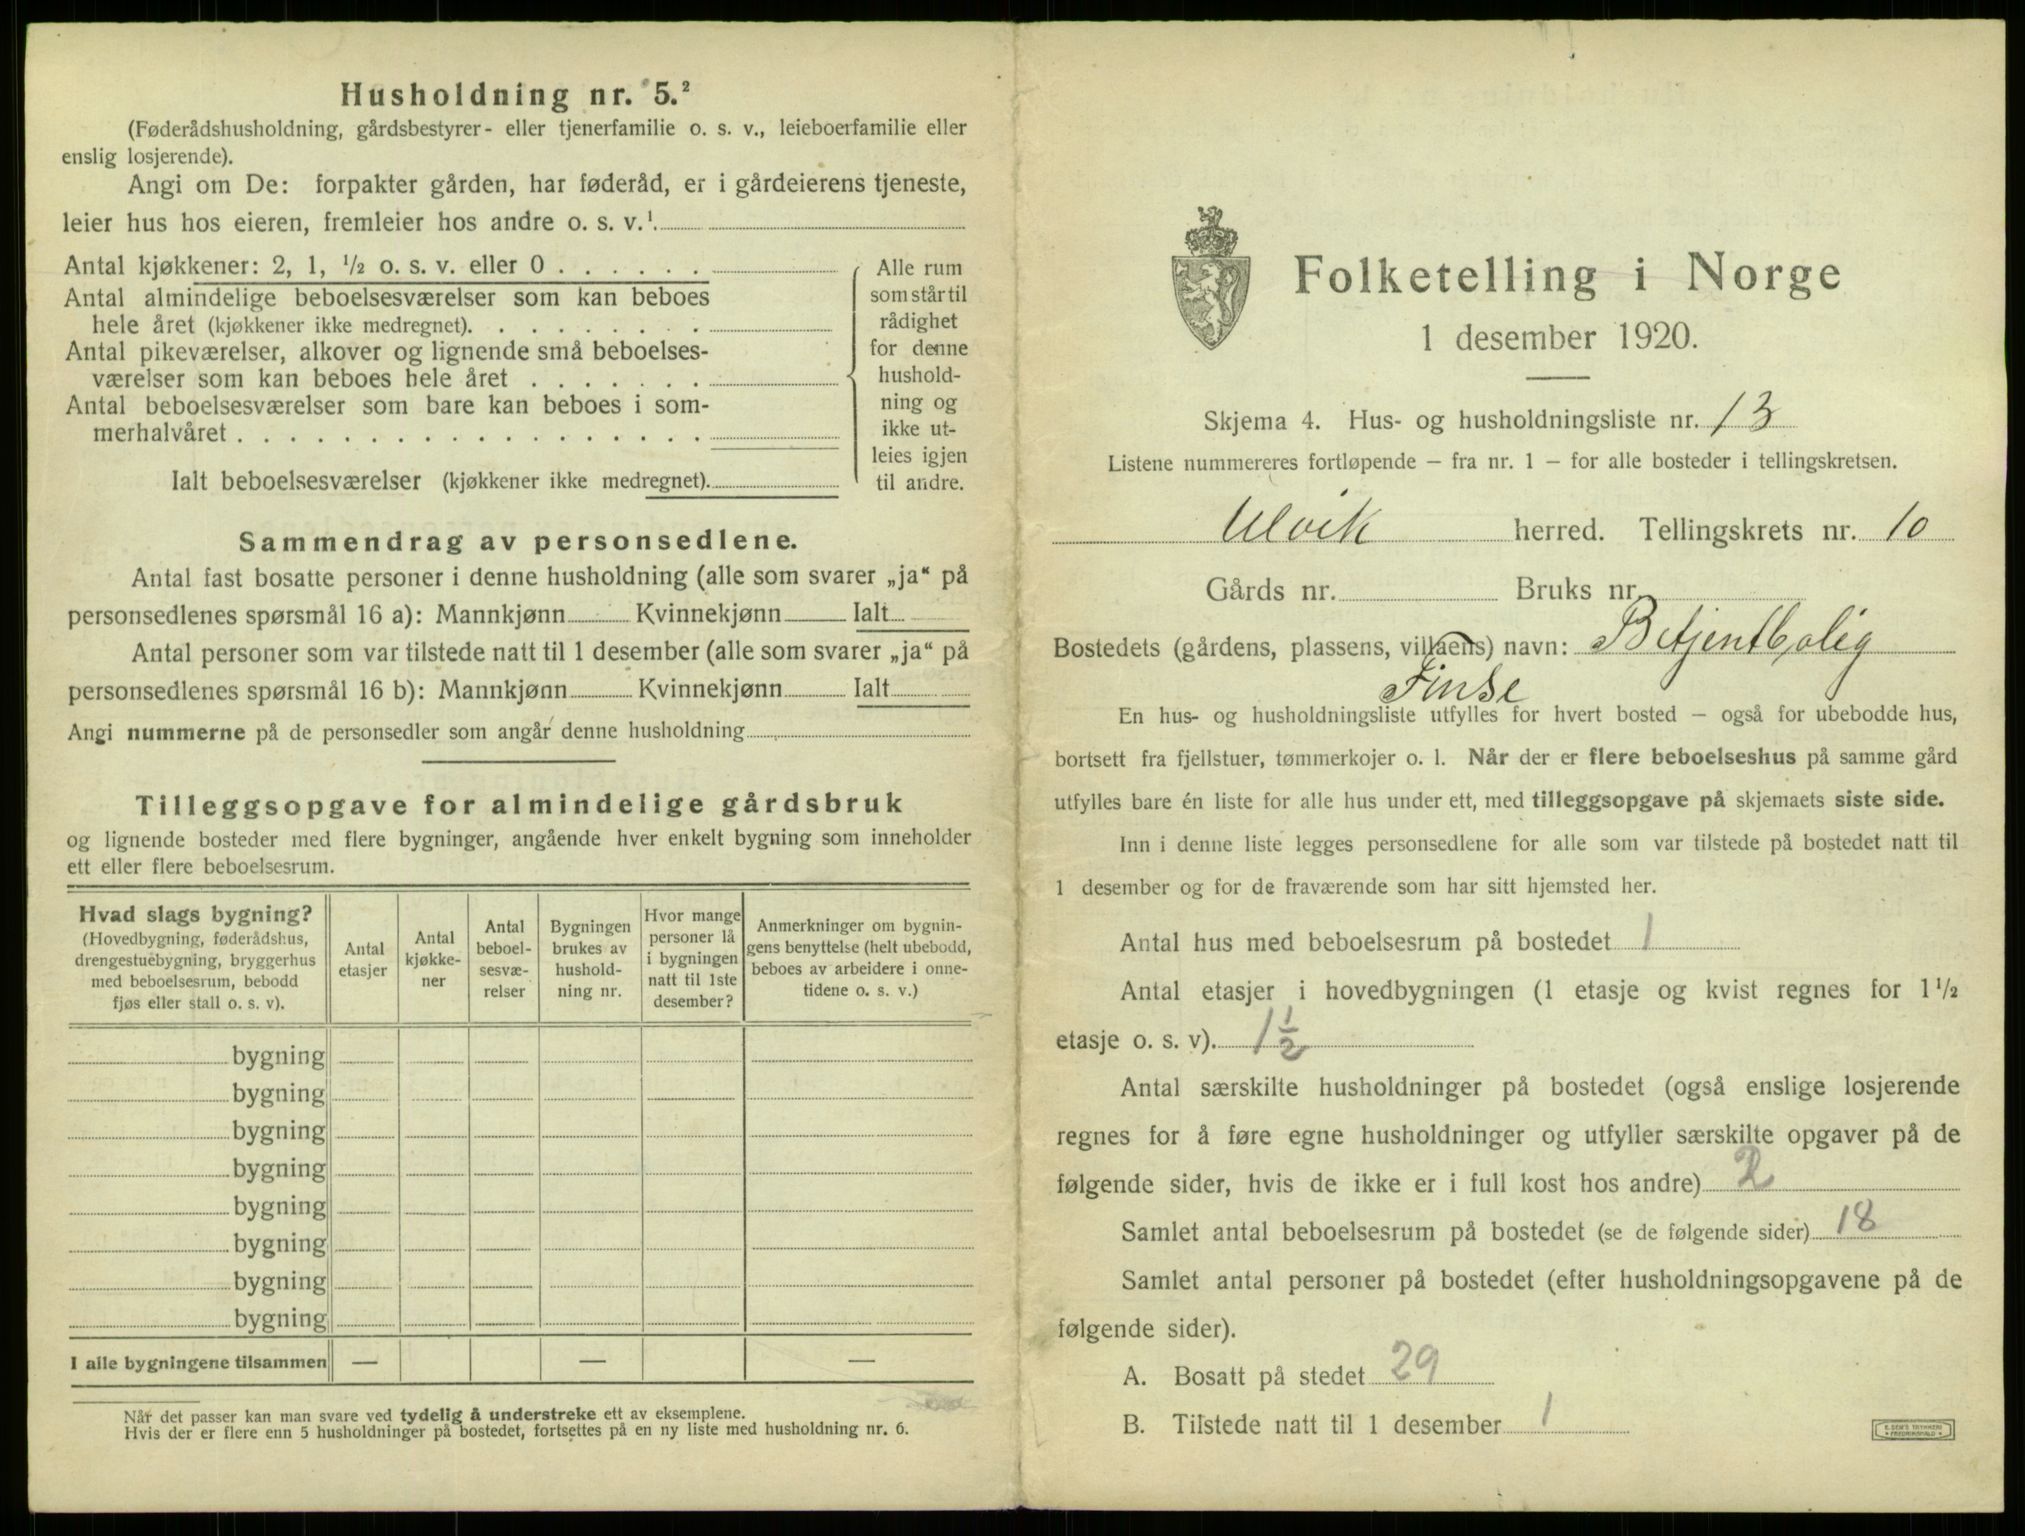 Husholdning nr. 5.²
(Føderådshusholdning, gårdsbestyrer- eller tjenerfamilie o. s. v., leieboerfamilie eller
enslig losjerende).
Angi om De: forpakter gården, har føderåd, er i gårdeierens tjeneste,
leier hus hos eieren, fremleier hos andre o. s. v.¹
Antal kjøkkener: 2, 1, ½ o. s. v. eller 0 . . . . . .
Antal almindelige beboelsesværelser som kan beboes
hele året (kjøkkener ikke medregnet). . . . . . . . .
Antal pikeværelser, alkover og lignende små beboelses-
værelser som kan beboes hele året . . . . . . .
Antal beboelsesværelser som bare kan beboes i som-
merhalvåret . . . . . . . . . . . . . . . . . .
Ialt beboelsesværelser (kjøkkener ikke medregnet).
Alle rum
som står til
rådighet
for denne
hushold-
ning og
ikke ut-
leies igjen
til andre.
Sammendrag av personsedlene.
Antal fast bosatte personer i denne husholdning (alle som svarer „ja“ på
personsedlenes spørsmål 16 a): Mannkjønn Kvinnekjønn Ialt
Antal personer som var tilstede natt til 1 desember (alle som svarer „ja“ på
personsedlenes spørsmål 16 b): Mannkjønn Kvinnekjønn Ialt
Angi nummerne på de personsedler som angår denne husholdning
Tilleggsopgave for almindelige gårdsbruk
og lignende bosteder med flere bygninger, angående hver enkelt bygning som inneholder
ett eller flere beboelsesrum.
Hvad slags bygning?
(Hovedbygning, føderådshus,
drengestuebygning, bryggerhus
med beboelsesrum, bebodd
fjøs eller stall o. s. v).
Antal
etasjer
Antal
kjøkke-
ner
Antal
beboel-
sesvæ-
relser
Bygningen
brukes av
hushold-
ning nr.
Hvor mange
personer lå
i bygningen
natt til 1ste
desember?
Anmerkninger om bygnin-
gens benyttelse (helt ubebodd,
beboes av arbeidere i onne-
tidene o. s. v.)
bygning
bygning
bygning
bygning
bygning
bygning
bygning
bygning
I alle bygningene tilsammen — — —
Når det passer kan man svare ved tydelig å understreke ett av eksemplene.
Hvis der er flere enn 5 husholdninger på bostedet, fortsettes på en ny liste med husholdning nr. 6.
Folketelling i Norge
1 desember 1920.
Skjema 4. Hus- og husholdningsliste nr. 13
Listene nummereres fortløpende – fra nr. 1 – for alle bosteder i tellingskretsen.
Ulvik herred. Tellingskrets nr. 10
Gårds nr. Bruks nr.
Bostedets (gårdens, plassens, villaens) navn: Betjentbolig
Finse
En hus- og husholdningsliste utfylles for hvert bosted – også for ubebodde hus,
bortsett fra fjellstuer, tømmerkojer o. l. Når der er flere beboelseshus på samme gård
utfylles bare én liste for alle hus under ett, med tilleggsopgave på skjemaets siste side.
Inn i denne liste legges personsedlene for alle som var tilstede på bostedet natt til
1 desember og for de fraværende som har sitt hjemsted her.
Antal hus med beboelsesrum på bostedet 1
Antal etasjer i hovedbygningen (1 etasje og kvist regnes for 1½
etasje o. s. v). 1½
Antal særskilte husholdninger på bostedet (også enslige losjerende
regnes for å føre egne husholdninger og utfyller særskilte opgaver på de
følgende sider, hvis de ikke er i full kost hos andre) 2
Samlet antal beboelsesrum på bostedet (se de følgende sider) 18
Samlet antal personer på bostedet (efter husholdningsopgavene på de
følgende sider).
A. Bosatt på stedet 29
B. Tilstede natt til 1 desember 1